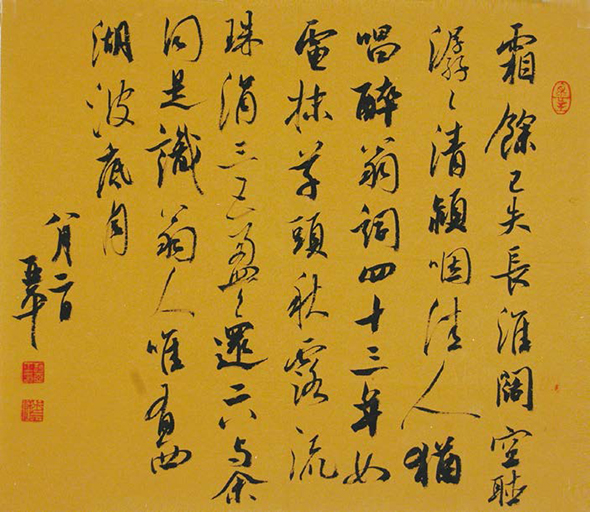 霜餘已失長淮闊空聽
潺〻清潁咽佳人猶
唱醉翁詞四十三年如
電抹草頭秋露流
珠滑三五盈〻還二八与余
同是識翁人唯有西
湖波底月
八月二日